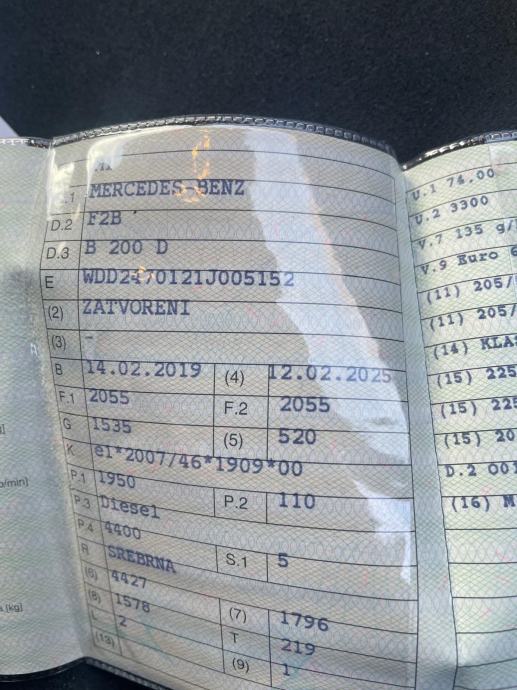 D.1 MERCEDES-BENZ
D.2 F2B
D.3 B 200 D
E WDD2470121J005152
(2) ZATVORENI
(3) -
B 14.02.2019 (4) 12.02.2025
F.1 2055 F.2 2055
G 1535 (5) 520
K e1*2007/46*1909*00
P.1 1950 P.2 110
P.3 Diesel
P.4 4400
R SREBRNA S.1 5
(6) 4427
(8) 1578 (7) 1796
L 2 T 219
(13) (9) 1
U.1 74.00
U.2 3300
V.7 135 g/
V.9 Euro 6
(11) 205/
(11) 205/
(14) KLAS
(15) 225
(15) 225
(15) 20
D.2 001
(16) M
/min)
(kg)